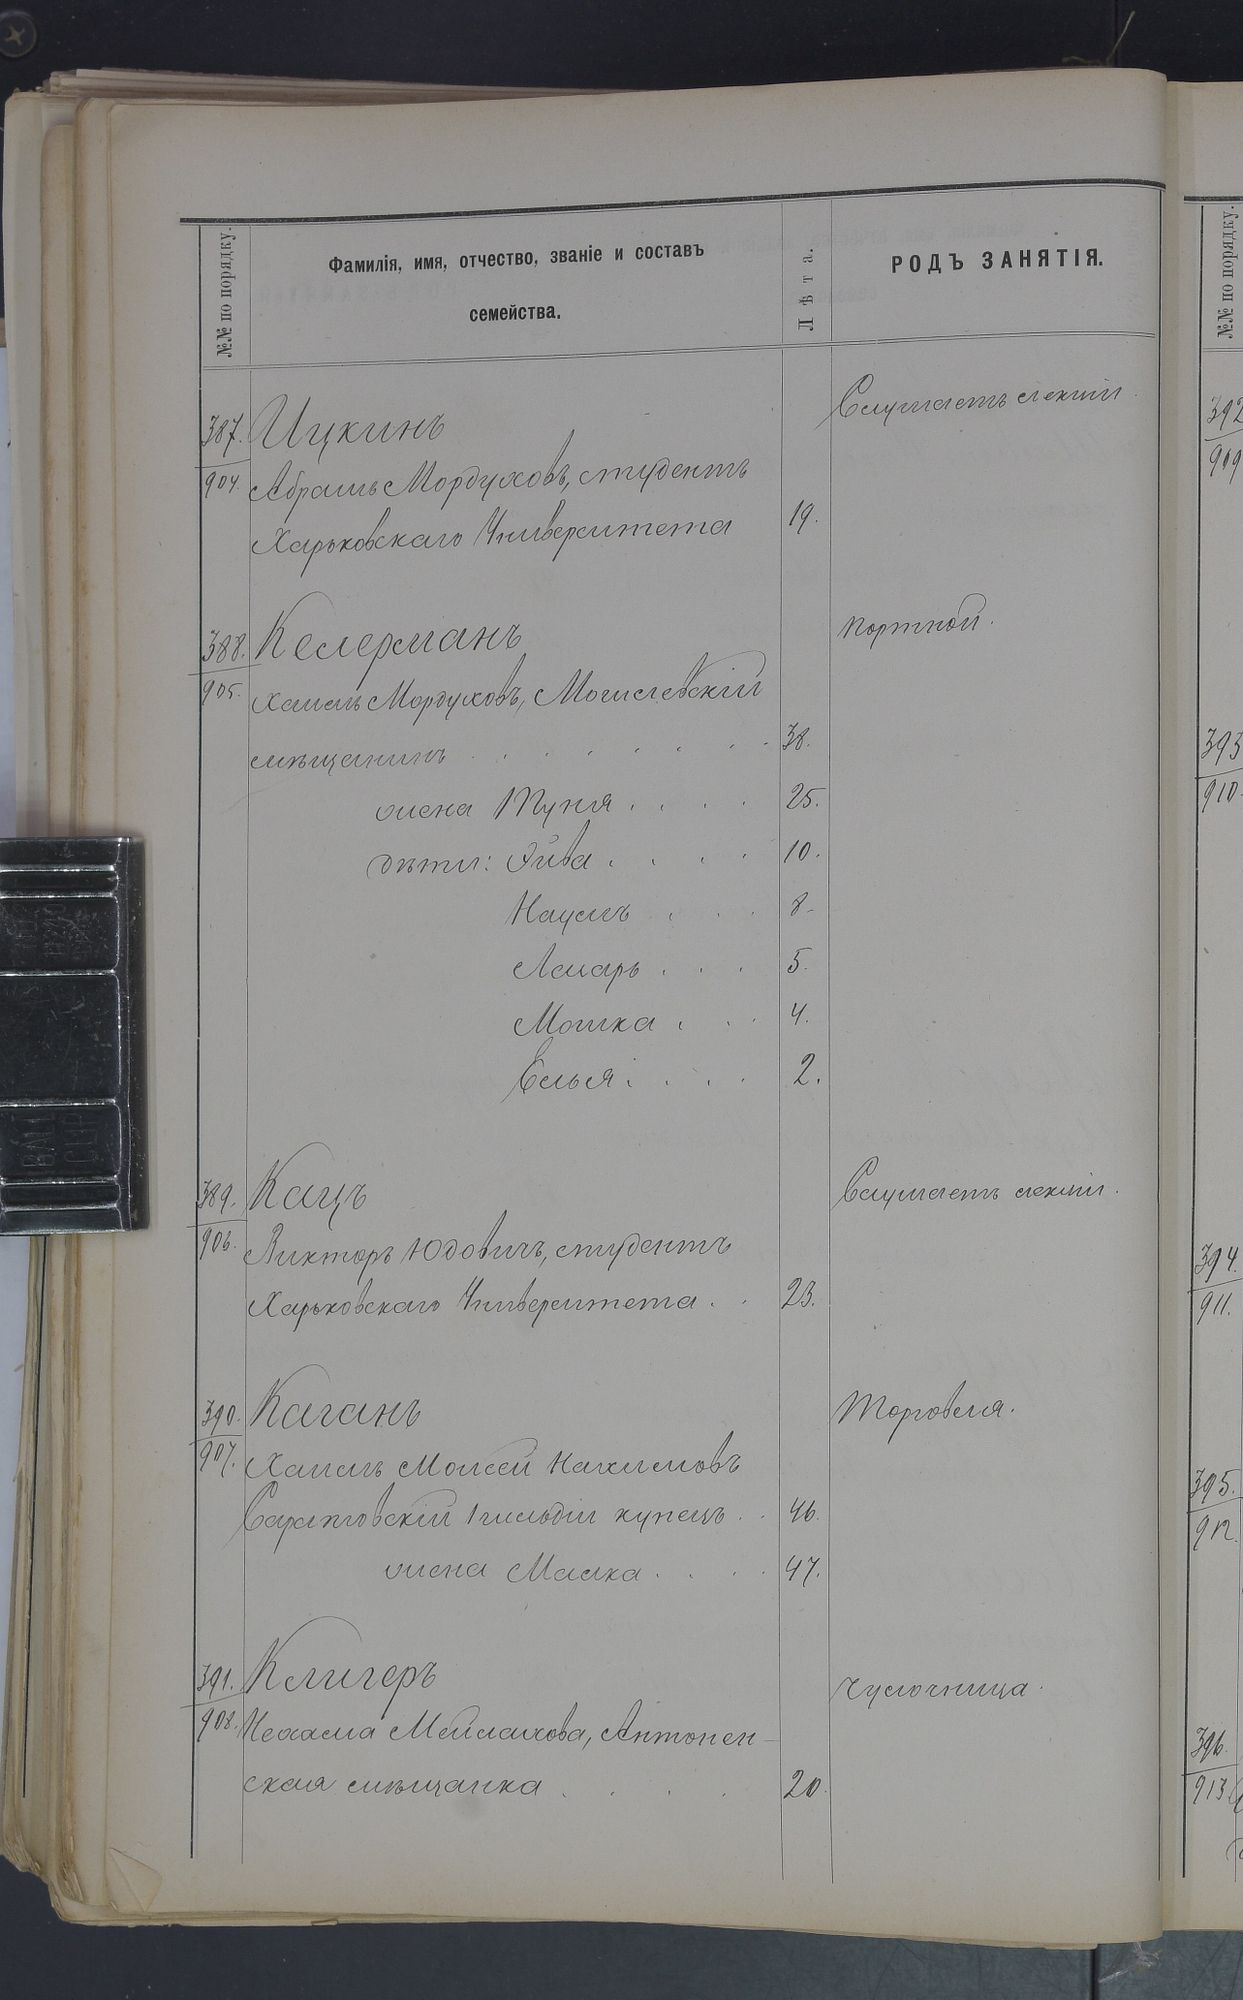 №№ по порядку.
Фамилія, имя, отчество, званіе и составъ
семейства.
Лѣта.
РОДЪ ЗАНЯТІЯ.
387. Ицкинъ Слушаетъ лекціи.
904. Абрамъ Мордуховъ, студентъ
Харьковскаго Университета 19.
388. Келерманъ портной.
905. Хаимъ Мордуховъ, Могилевскій
мѣщанинъ . . . . . . . 38.
жена Туня . . . . 25.
дѣти: Эйва . . . . 10.
Наумъ . . . 8.
Лазарь . . . 5.
Мошка . . . 4.
Елья . . . . 2.
389. Кацъ Слушаетъ лекціи.
906. Викторъ Юдовичъ, студентъ
Харьковскаго Университета . . 23.
390. Каганъ Торговля.
907. Хаимъ Моисей Нахимовъ
Саратовскій 1 гильдіи купецъ . . 46.
жена Малка . . . . 47.
391. Клигеръ Чулочница.
908. Нехама Мейлахова, Антопен-
ская мѣщанка . . . . 20.
№№ по порядку.
392
909
393
910.
394.
911.
395.
912.
396.
913.